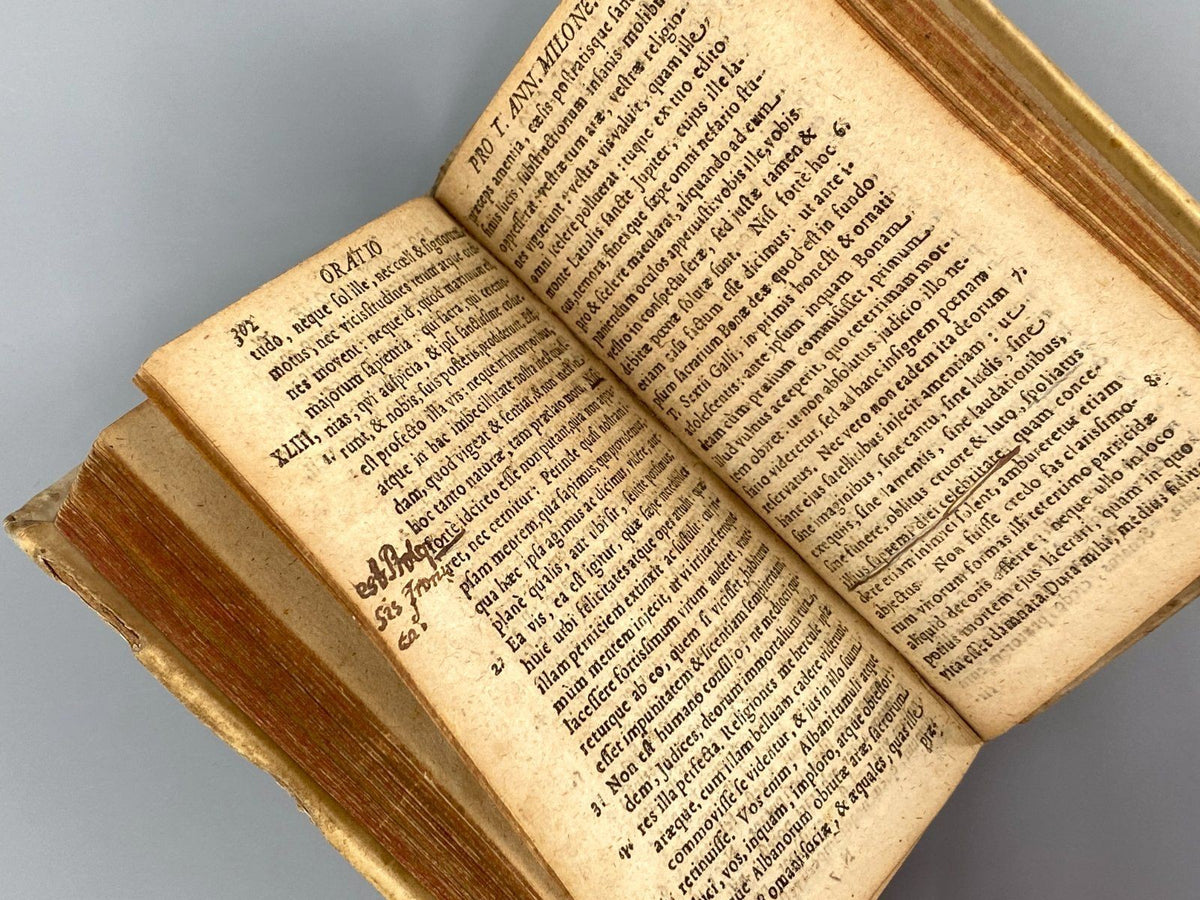 302 ORATIO
tudo, neque ſol ille, nec cœli & ſignorum
motus, nec viciſſitudines rerum atque ordi-
nes movent; neque id, quod maximum eſt,
majorum ſapientia: qui ſacra, qui ceremo-
XLIII. nias, qui auſpicia, & ipſi ſanctiſſime colue-
runt, & nobis, ſuis poſteris prodiderunt. Eſt,
eſt profecto illa vis: neque in his corporibus,
atque in hac imbecillitate noſtra ineſt quid-
dam, quod vigeat & ſentiat, & non ineſt in
hoc tanto naturæ, tam præclaro motu. Niſi
forte idcirco eſſe non putant, quia non apparet
nec cernitur: Perinde quaſi noſtram i-
pſam mentem, qua ſapimus, qua providemus,
qua hæc ipſa agimus ac dicimus, videre, aut
plane qualis, aut ubi ſit, ſentire poſſimus.
2 Ea vis, ea eſt igitur, quæ ſæpe incredibiles
huic urbi felicitates atque opes attulit, quæ
illam perniciem extinxit, ac ſuſtulit: cui pri-
mium mentem injecit, ut vi irritare ferroque
laceſſere fortiſſimum virum auderet, vince-
returque ab eo, quem ſi viciſſet, habiturus
eſſet impunitatem & licentiam ſempiternam.
3 Non eſt humano conſilio, ne mediocri qui-
dem, Judices, deorum immortalium cura
res illa perfecta. Religiones mehercule ipſæ
4 aræque, cum illam belluam cadere viderunt,
commoviſſe ſe videntur, & jus in illo ſuum
retinuiſſe. Vos enim, Albani tumuli atque
luci, vos, inquam, imploro, atque obteſtor,
que Albanorum obrutæ aræ, ſacrorum
Romani ſociæ, & æquales, quas ille
præ-
est
PRO T. ANN. MILONE.
præceps amentia, cæſis proſtratiſque ſan-
ſimis lucis, ſubſtructionum inſanis molibus
oppreſſerat: veſtræ tum aræ, veſtræ religio-
nes viguerunt: veſtra vis valuit, quam ille
omni ſcelere polluerat: tuque ex tuo edito
monte Latialis ſancte Jupiter, cujus ille la-
cus, nemora, fineſque ſæpe omni nefario ſtu-
pro & ſcelere macularat, aliquando ad eum
puniendum oculos aperuiſti: vobis ille, vobis
veſtro in conſpectu ſeræ, ſed juſtæ tamen &
debitæ pœnæ ſolutæ ſunt. Niſi forte hoc 6
etiam caſu factum eſſe dicimus: ut ante i-
pſum ſacrarium Bonæ deæ quod eſt in fundo
T. Sextii Galli, in primis honeſti & ornati
adoleſcentis, ante ipſam inquam Bonam
deam cum prælium commiſiſſet, primum
illud vulnus acceperit, quo teterrimam mor-
tem obiret: ut non abſolutus judicio illo ne-
fario videretur, ſed ad hanc inſignem pœnam
reſervatus. Nec vero non eadem ita deorum 7
hanc ejus ſatellitibus injecit amentiam: ut
ſine imaginibus, ſine cantu, ſine ludis, ſine
exequiis, ſine lamentis, ſine laudationibus,
ſine funere, oblitus cruore & luto, ſpoliatus
illius ſupremi diei celebritate, quam conce-
dere etiam inimici ſolent, ambureretur etiam
abjectus. Non fuiſſe credo fas clariſſimo- 8
rum virorum formas illi teterrimo parricidæ
aliquid decoris afferre: neque ullo in loco
potius mortem ejus lacerari, quam in quo
vita eſſet damnata. Dura mihi, medius fidius